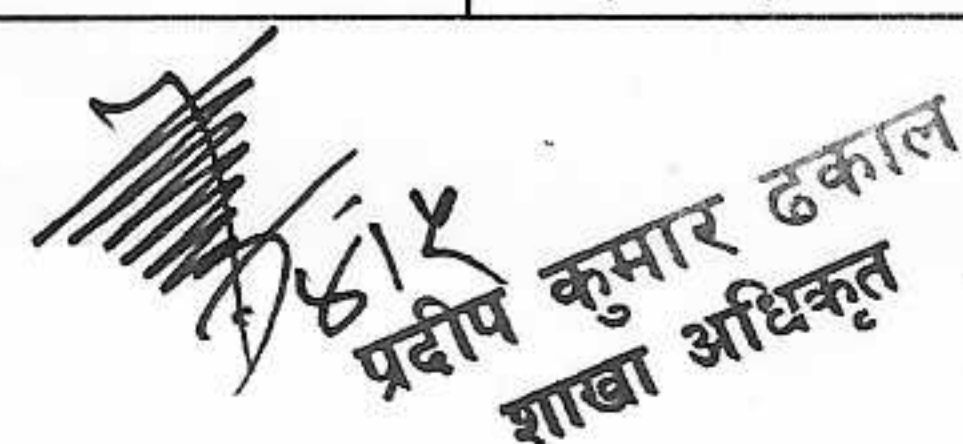 प्रदीप कुमार ढकाल
शाखा अधिकृत